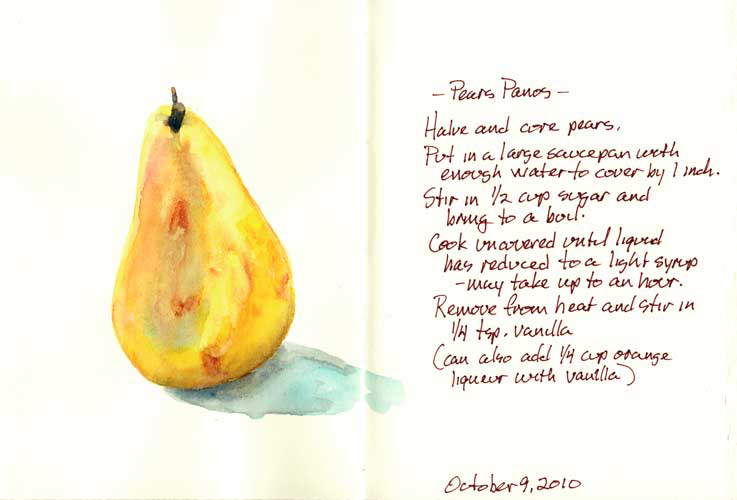 - Pears Panos -
Halve and core pears.
Put in a large saucepan with
enough water to cover by 1 inch.
Stir in 1/2 cup sugar and
bring to a boil.
Cook uncovered until liquid
has reduced to a light syrup
- may take up to an hour.
Remove from heat and stir in
1/4 tsp. vanilla
(can also add 1/4 cup orange
liqueur with vanilla)
October 9, 2010